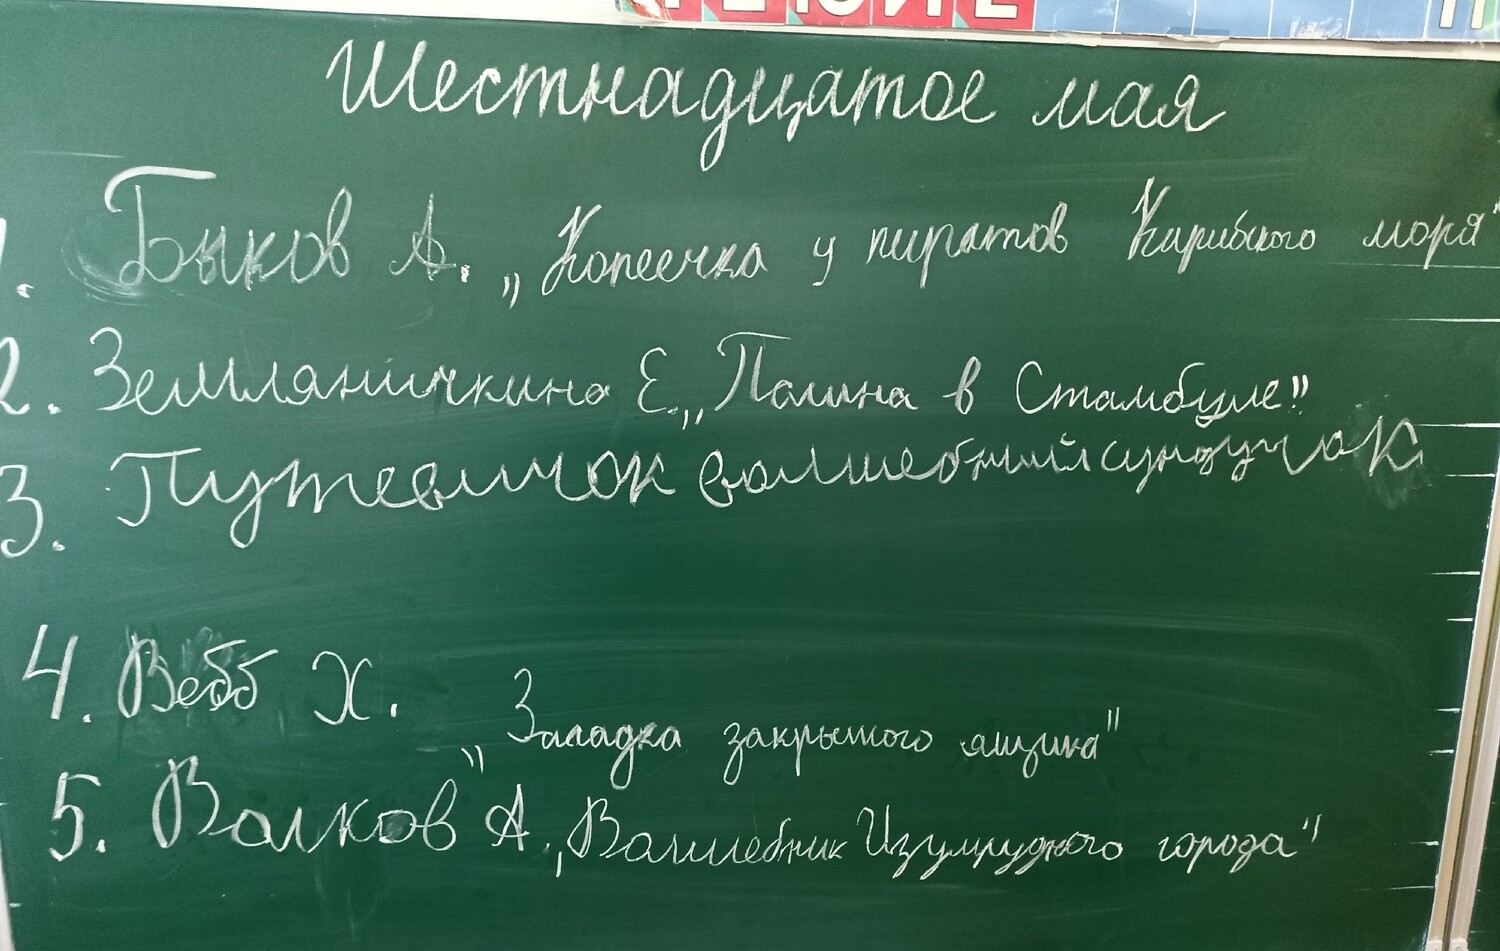 Шестнадцатое мая
1. Быков А. „Копеечка у пиратов Карибского моря"
2. Земляничкина Е. „Полина в Стамбуле"
3. Путевичок волшебный сундучок
4. Вебб Х. „Загадка закрытого ящика"
5. Волков А. „Волшебник Изумрудного города"